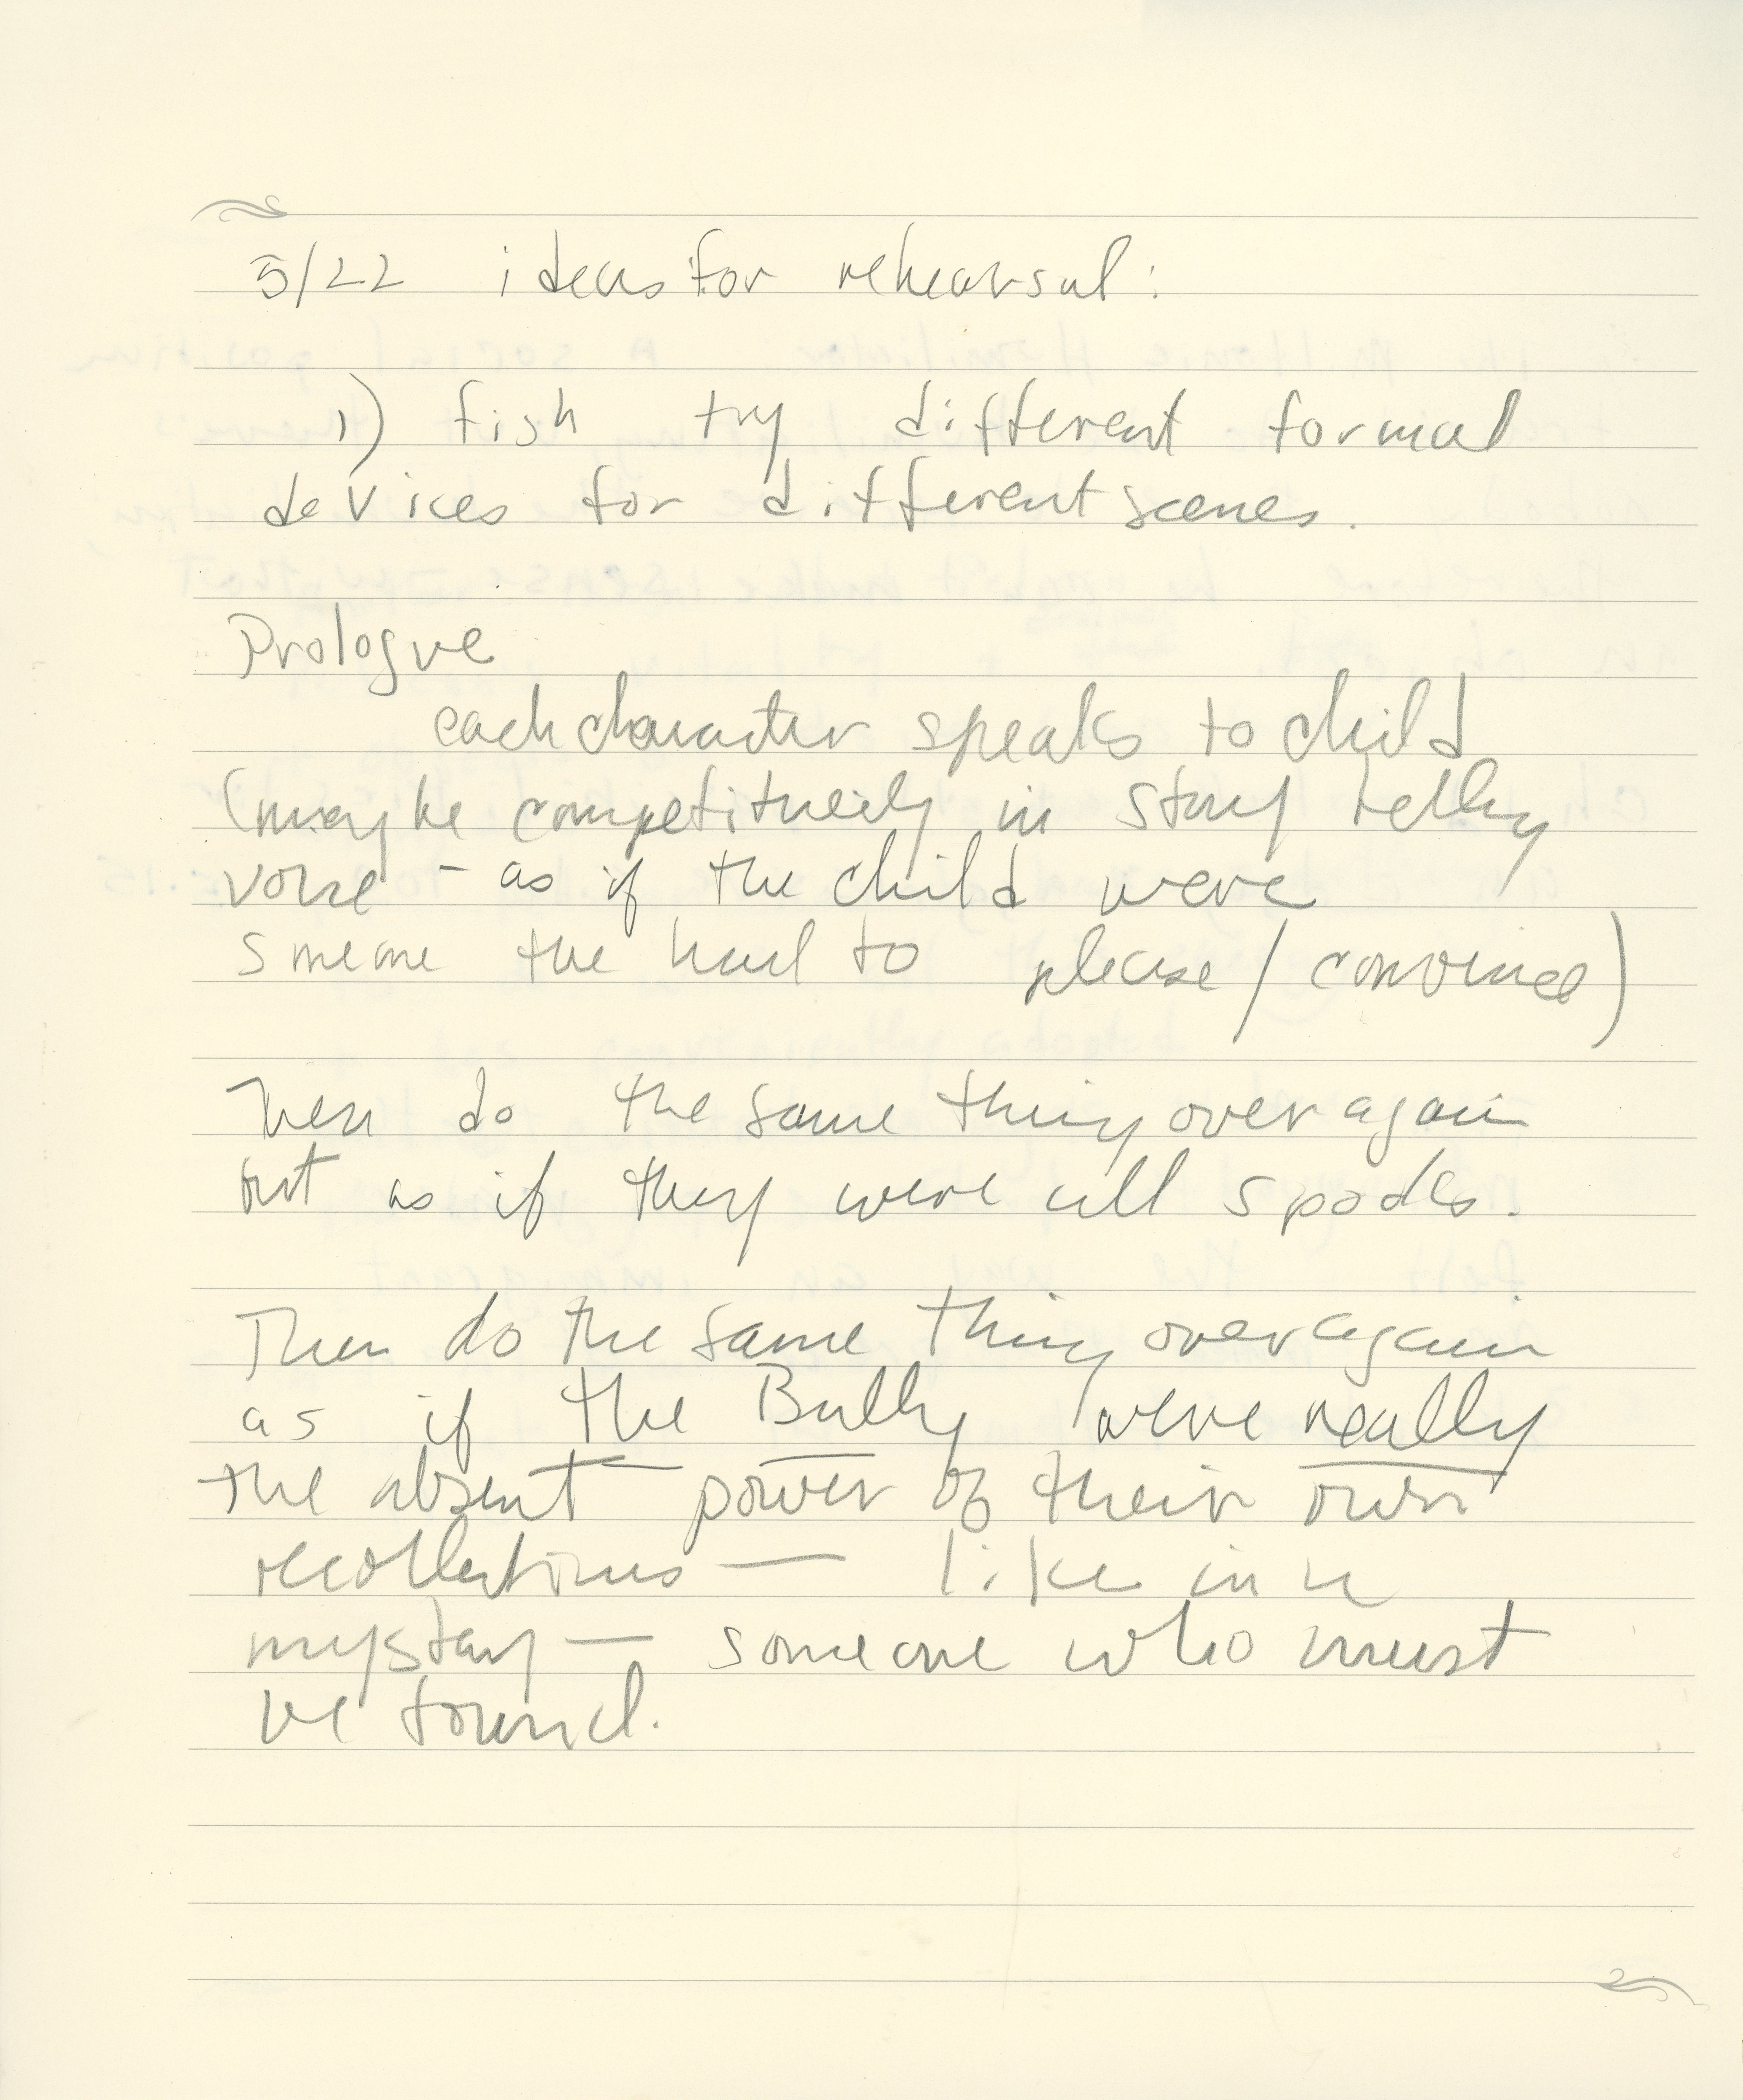 5/22 ideas for rehearsal:
1) fish try different formal
devices for different scenes.
Prologue
each character speaks to child
(maybe competitively in story telling
voice - as if the child were
someone the had to please / convince)
Then do the same thing over again
but as if they were all spooks.
Then do the same thing over again
as if the Bully were really
the absent power of their own
recollections — like in a
mystery — someone who must
be found.